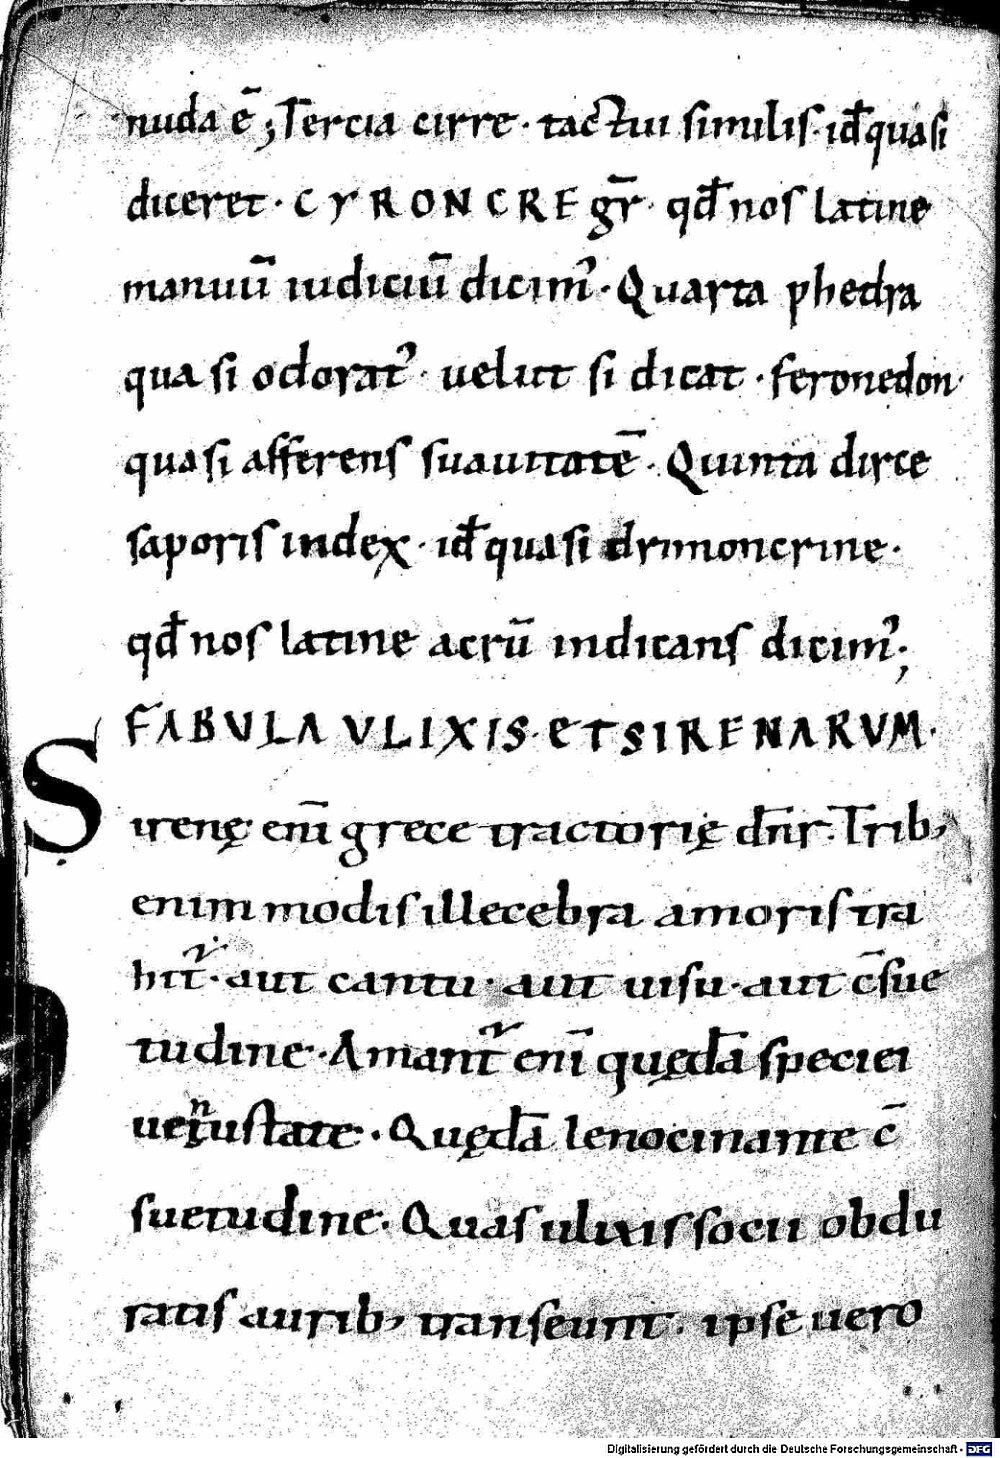 nuda ē; Tercia cirre · tactui similis · id̄ quasi
diceret · CYRON CRE gr̄ · qd̄ nos latine
manuū iudiciū dicim᾿ · Quarta phedra
quasi odorat᾿ · uelut si dicat · feronedon ·
quasi afferens suauitatē · Quinta dirce
saporis index · id̄ quasi drimoncrine ·
qd̄ nos latine acrū indicans dicim᾿;
FABULA VLIXIS · ET SIRENARVM ·
Sirenę eni̅ grece tractorię dn̄r · Trib;
enim modis illecebra amoris tra
hit᷑ · aut cantu · aut uisu · aut c̄sue
tudine · Amant᷑ eni̅ quędā speciei
uenustate · Quędā lenocinante c̄
suetudine · Quas ulixis socii obdu
ratis aurib; transeunt · ipse uero
Digitalisierung gefördert durch die Deutsche Forschungsgemeinschaft - DFG